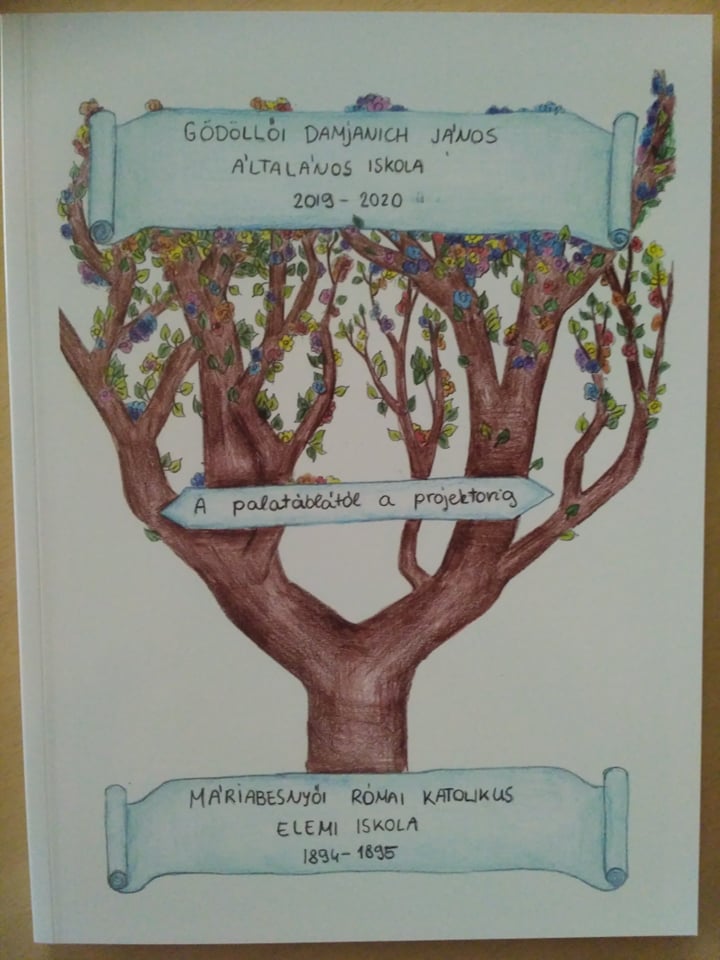 GÖDÖLLŐI DAMJANICH JÁNOS
ÁLTALÁNOS ISKOLA
2019 - 2020
A palatáblától a projektorig
MÁRIABESNYŐI RÓMAI KATOLIKUS
ELEMI ISKOLA
1894 - 1895